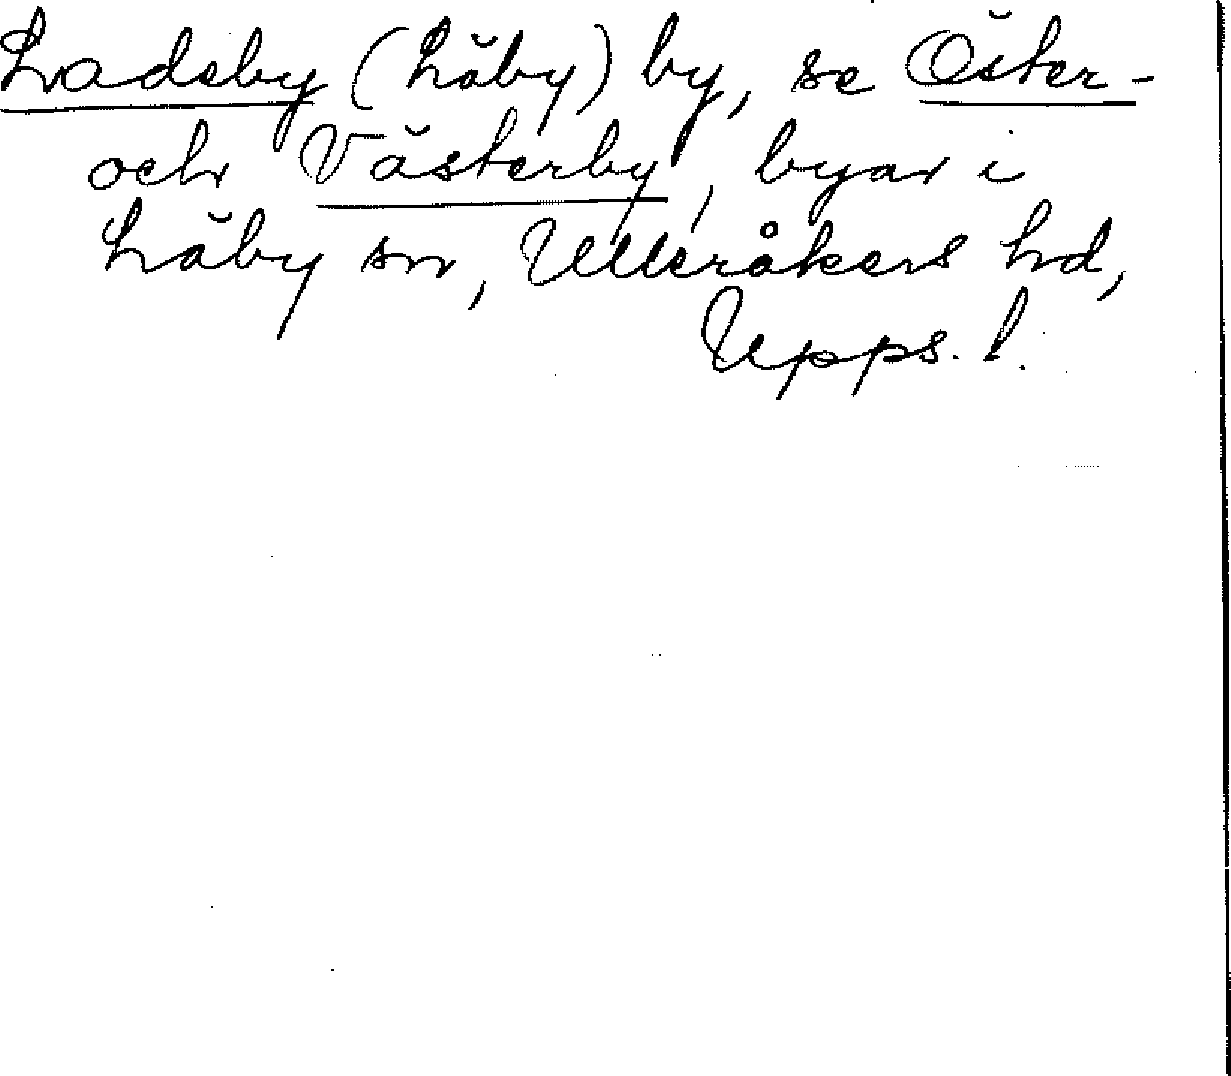 Ladeby (Läby) by, se Öster-
och Västerby, byar i
Läby sn, Ulleråkers hd,
Upps. l.